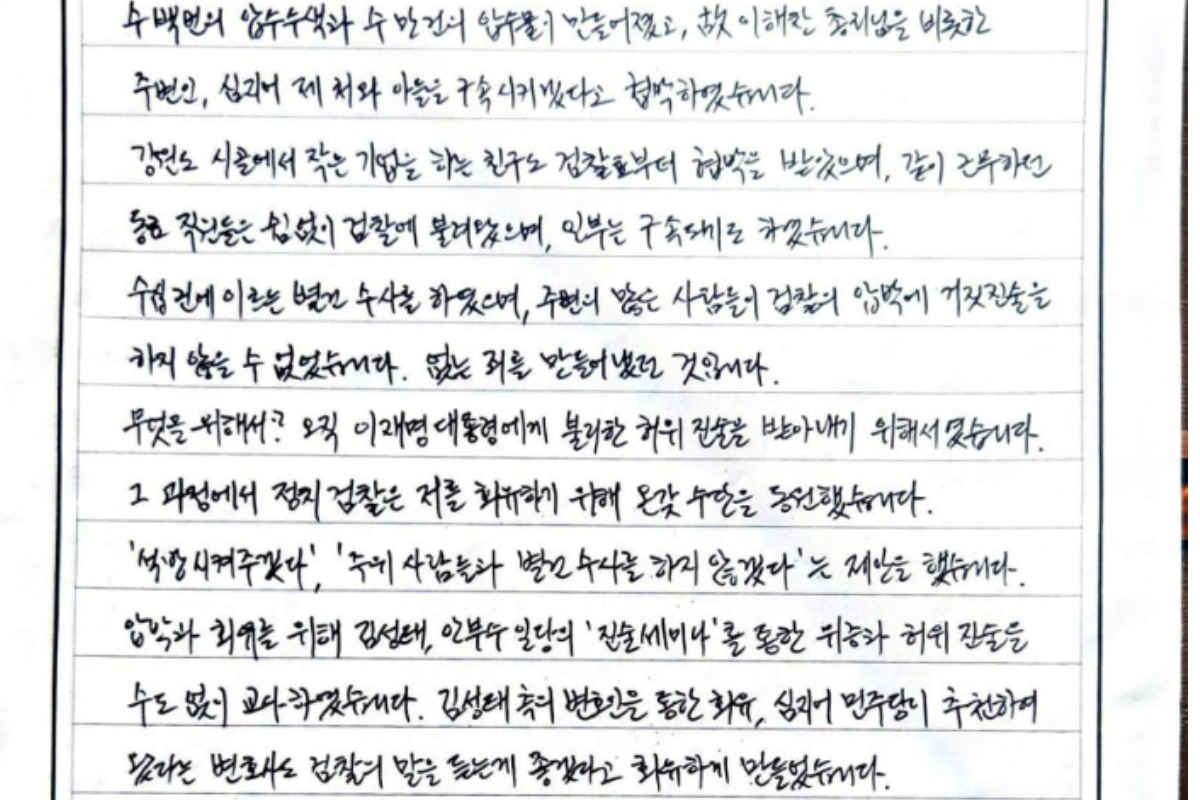 수백번의 압수수색과 수 만건의 압수물이 만들어졌고, 故 이해찬 총리님을 비롯한
주변인, 심지어 제 처와 아들을 구속시키겠다고 협박하였습니다.
강원도 시골에서 작은 기업을 하는 친구도 검찰로부터 협박을 받았으며, 같이 근무하던
동료 직원들은 쉼없이 검찰에 불려갔으며, 일부는 구속되기도 하였습니다.
수십건에 이르는 별건 수사를 하였으며, 주변의 많은 사람들이 검찰의 압박에 거짓진술을
하지 않을 수 없었습니다. 없는 죄를 만들어냈던 것입니다.
무엇을 위해서? 오직 이재명 대통령에게 불리한 허위 진술을 받아내기 위해서였습니다.
그 과정에서 정치검찰은 저를 회유하기 위해 온갖 수단을 동원했습니다.
'석방시켜주겠다', '주위 사람들과 별건 수사를 하지 않겠다'는 제안을 했습니다.
압박과 회유를 위해 김성태, 안부수 일당의 '진술세미나'를 통한 위증과 허위 진술을
수도 없이 교사하였습니다. 김성태 측의 변호인을 통한 회유, 심지어 민주당이 추천하여
왔다는 변호사도 검찰의 말을 듣는게 좋겠다고 회유하게 만들었습니다.